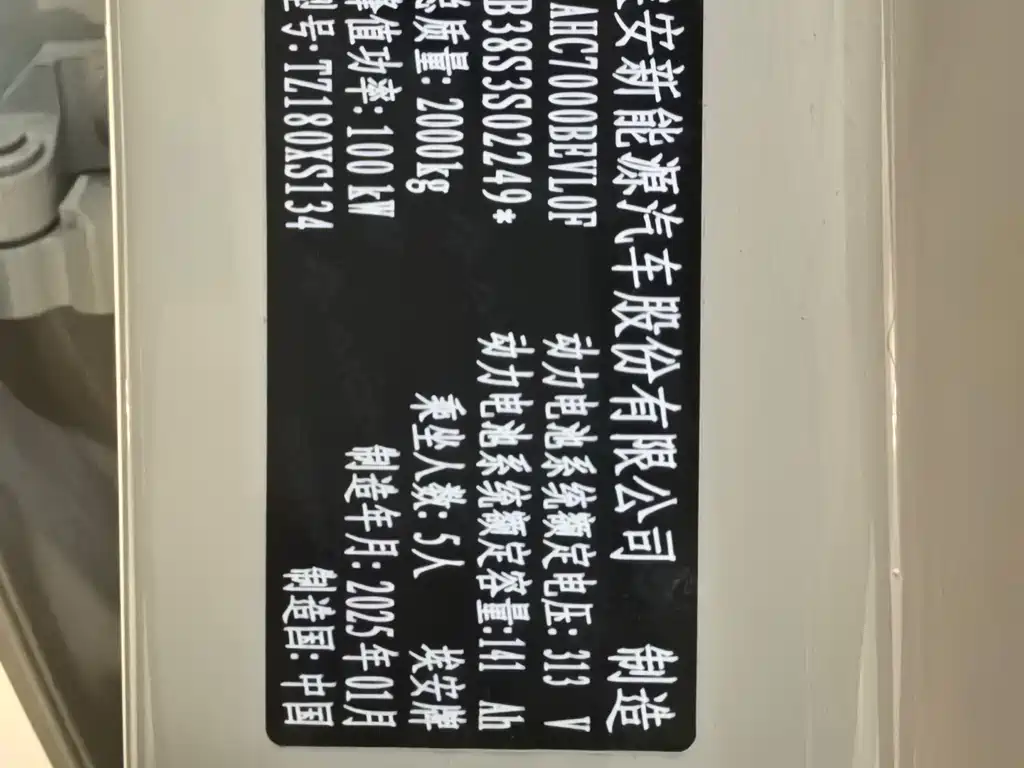 安新能源汽车股份有限公司 制造
AHC7000BEVL0F 动力电池系统额定电压:313 V
B38S3S02249* 动力电池系统额定容量:141 Ah
总质量:2000kg 乘坐人数:5人 埃安牌
峰值功率:100 kW 制造年月:2025年01月
型号:TZ180XS134 制造国:中国